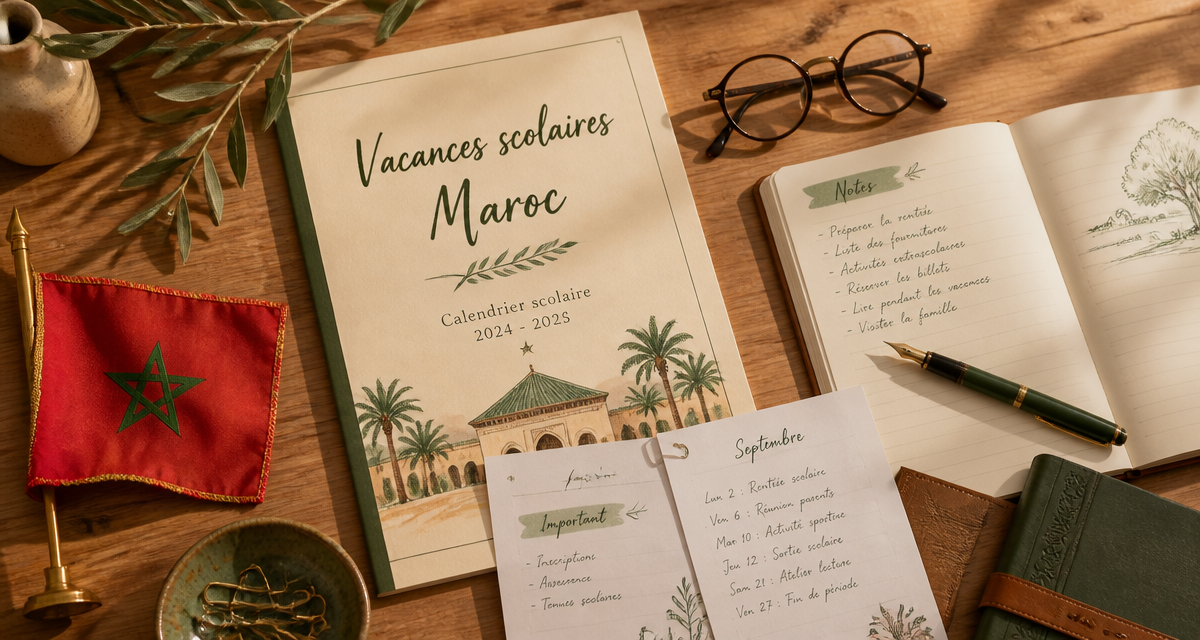 Vacances scolaires
Maroc
Calendrier scolaire
2024 - 2025
Notes
- Préparer la rentrée
- Liste des fournitures
- Activités extrascolaires
- Réserver les billets
- Lire pendant les vacances
- Visiter la famille
Important
- Inscriptions
- Assurence
- Tenues scolaires
Septembre
Lun 2 : Rentrée scolaire
Ven 6 : Réunion parents
Mar 10 : Activité sportive
Jeu 12 : Sortie scolaire
Sam 21 : Atelier lecture
Ven 27 : Fin de période